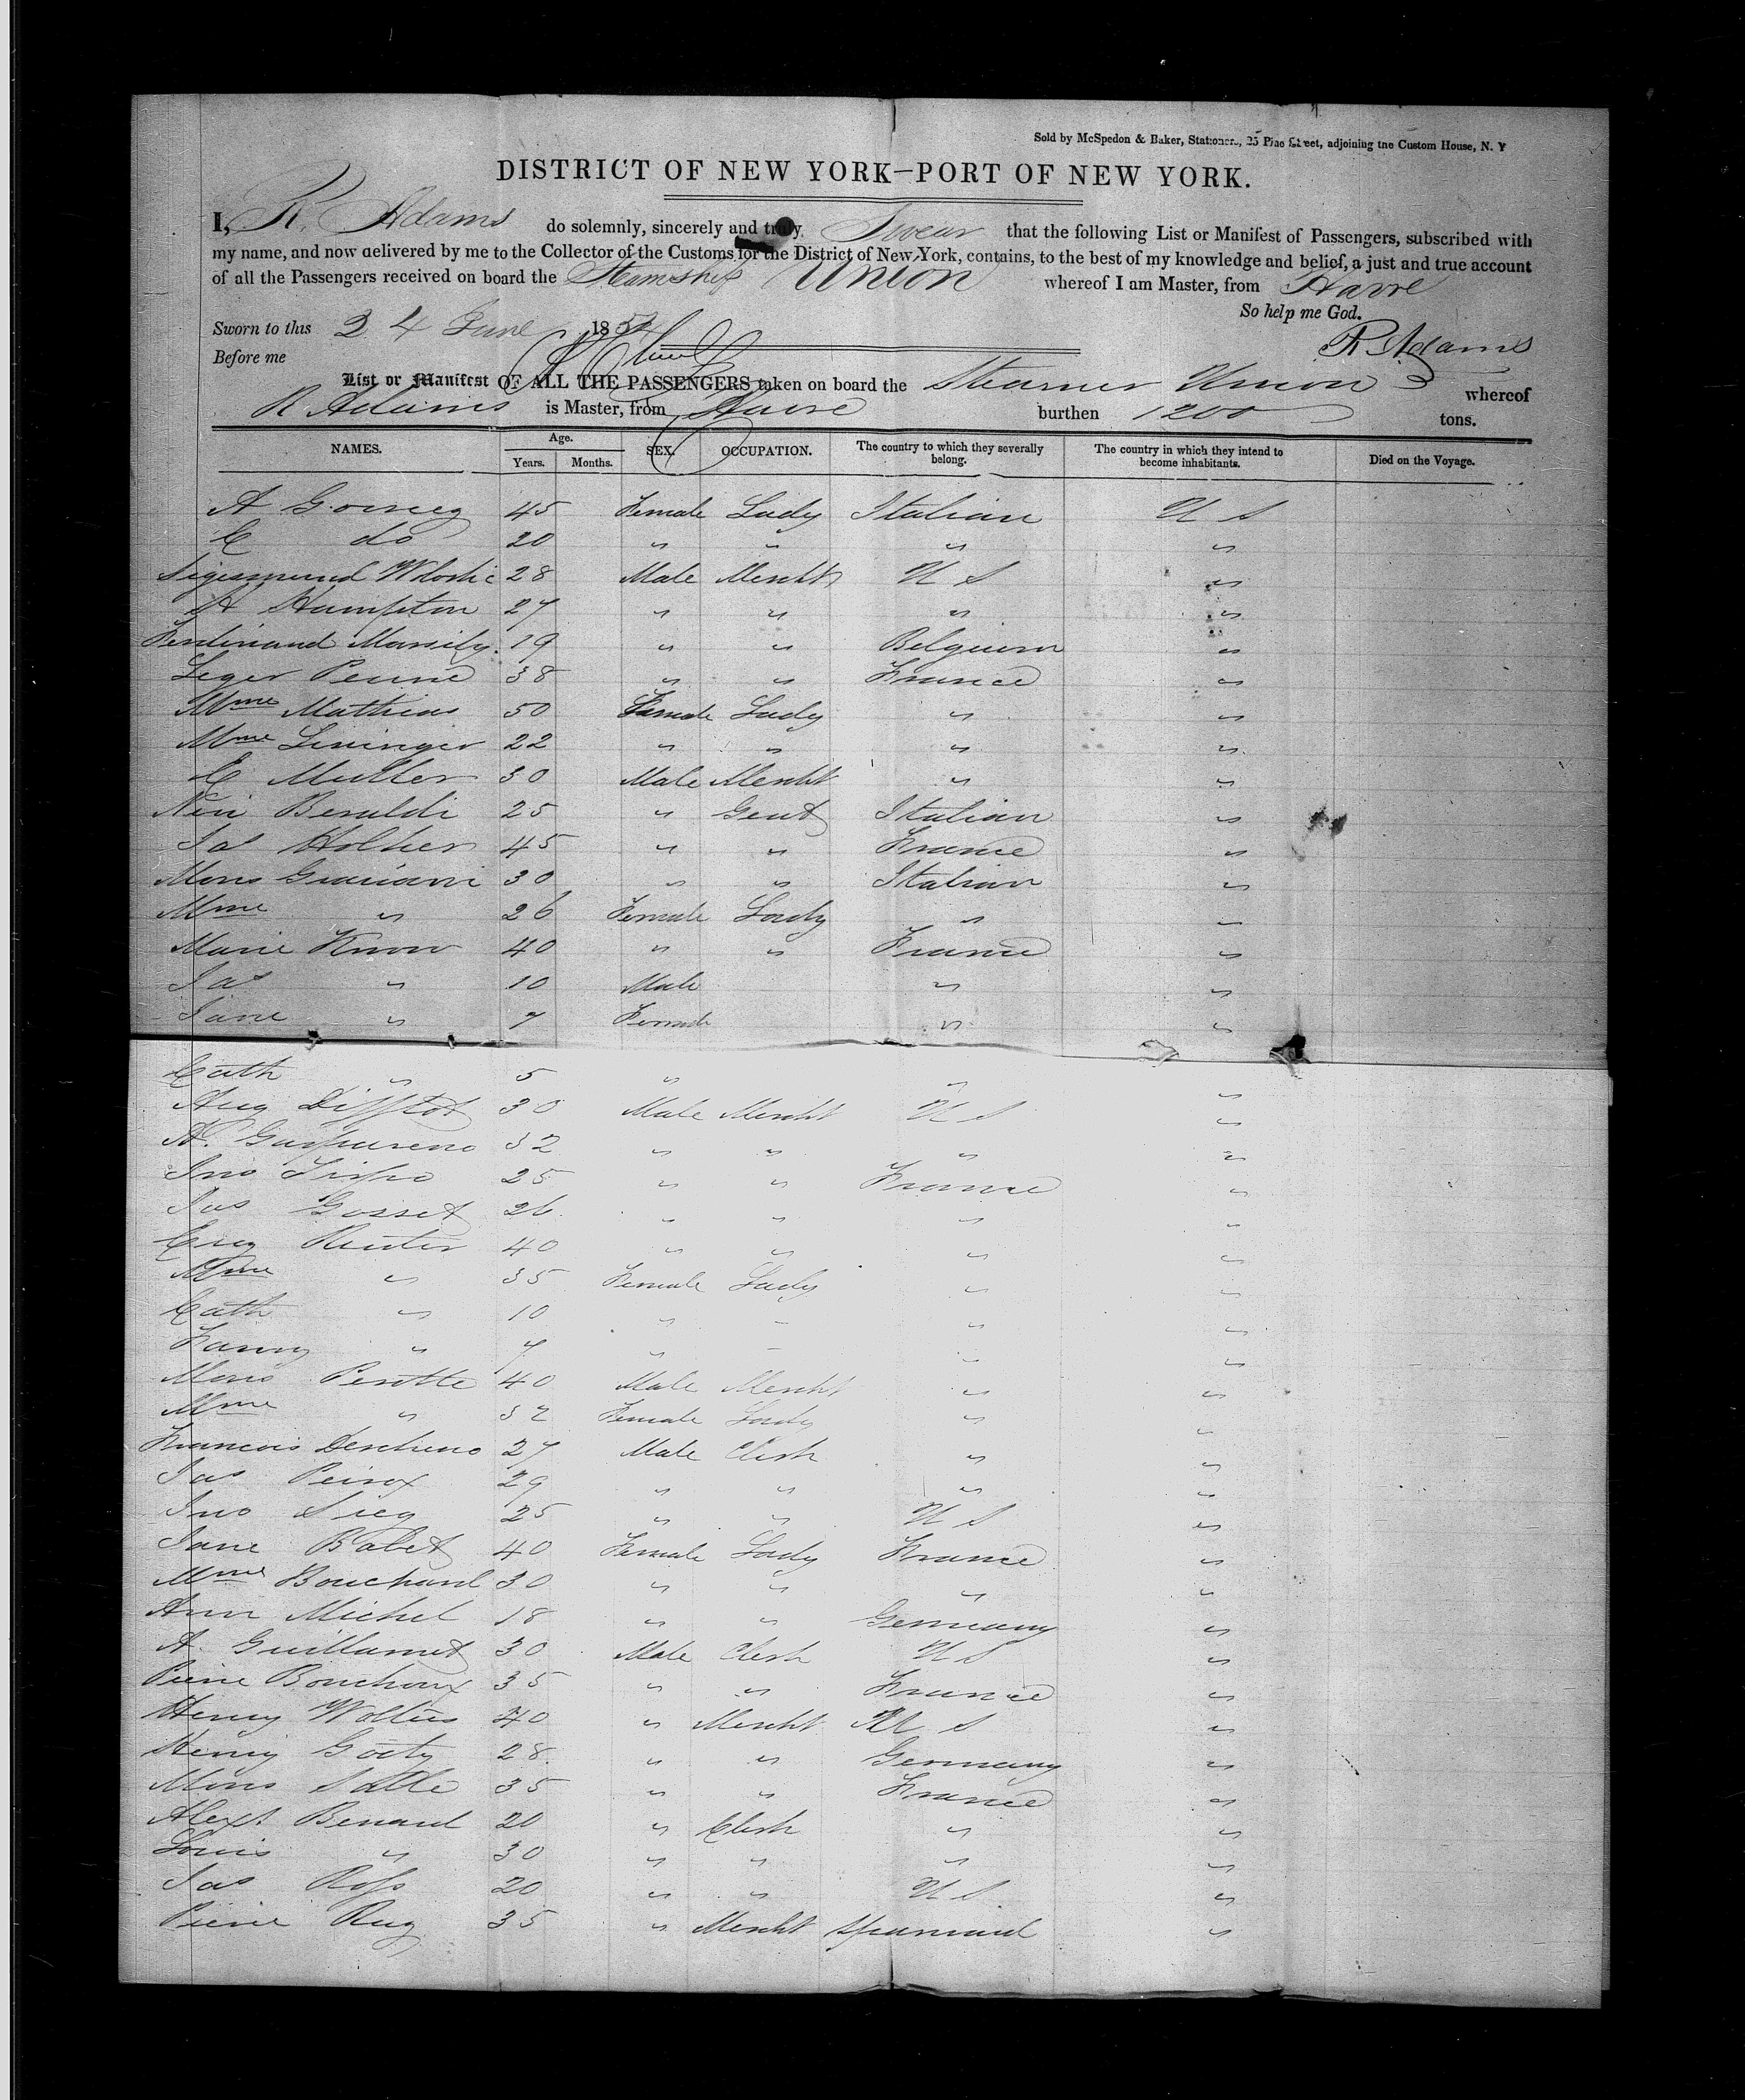 Sold by McSpedon & Baker, Stationers, 25 Pine Street, adjoining the Custom House, N. Y
DISTRICT OF NEW YORK—PORT OF NEW YORK.
I, R. Adams do solemnly, sincerely and truly Swear that the following List or Manifest of Passengers, subscribed with
my name, and now delivered by me to the Collector of the Customs for the District of New-York, contains, to the best of my knowledge and belief, a just and true account
of all the Passengers received on board the Steamship Union whereof I am Master, from Havre
So help me God.
Sworn to this 24 June 185
R Adams
Before me
List or Manifest OF ALL THE PASSENGERS taken on board the Steamer Union whereof
R Adams is Master, from Havre burthen 1200 tons.
NAMES. Age. Years. Months. SEX. OCCUPATION. The country to which they severally belong. The country in which they intend to become inhabitants. Died on the Voyage.
A 45 Female Lady Italian U S
C do 20 " " " "
Sigesmund 28 Male Mercht U S "
A Hampton 27 " " " "
Ferdinand 19 " " Belgium "
Leger 38 " " France "
Mme Mathias 50 Female Lady " "
Mme 22 " " " "
C Muller 30 Male Mercht " "
Beraldi 25 " Gent Italian "
Jas 45 " " France "
Mons 30 " " Italian "
Mme " 26 Female Lady " "
Marie Know 40 " " France "
Jas " 10 Male " "
Jane " 7 Female " "
Cath " 5 " " "
Aug 30 Male Mercht U S "
A. 32 " " " "
Jno 25 " " France "
Jas Gosset 26 " " " "
Reuter 40 " " " "
Mme " 35 Female Lady " "
Cath " 10 " " " "
Fanny " 7 " " " "
Mons 40 Male Mercht " "
Mme " 32 Female Lady " "
Francois 27 Male Clerk " "
Jas 29 " " " "
Jno Sieg 25 " " U S "
Jane Babet 40 Female Lady France "
Mme Bouchard 30 " " " "
Ann Michel 18 " " Germany "
A. Guillamet 30 Male Clerk U S "
Pierre Bouchoux 35 " " France "
Henry 40 " Mercht U S "
Henry 28 " " Germany "
Mons 35 " " France "
Alext Benard 20 " Clerk " "
Louis " 30 " " " "
Jas Ross 20 " " U S "
Pierre 35 " Mercht Spaniard "